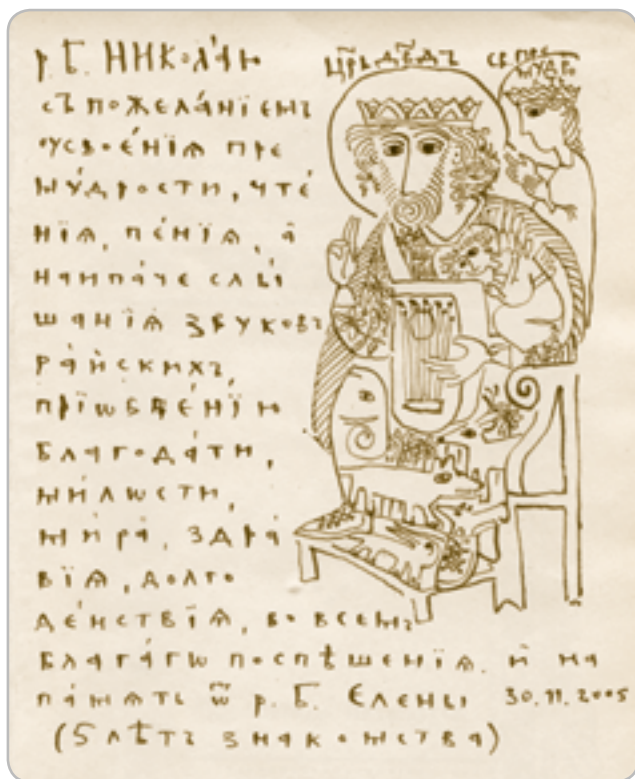 р. Б. НИКОЛА́Ю
съ пожела́нїемъ
ѹсвое́нїѧ пре
му́дрости, чте́
нїѧ, пе́нїѧ, а҆
наипа́че слы́
шанїѧ звуковъ
ра́йскихъ,
прїѡбще́нїю
благода́ти,
ми́лѡсти,
ми́ра, здра́
вїѧ, долго
де́нствїѧ, во всемъ
блага́гѡ поспѣшенїѧ. и҆ на
па́мѧть ѿ р. Б. Єлены 30.11.2005
(5 лѣтъ знакомства)
Цр҃ь Дв҃дъ
св. пре
мудро